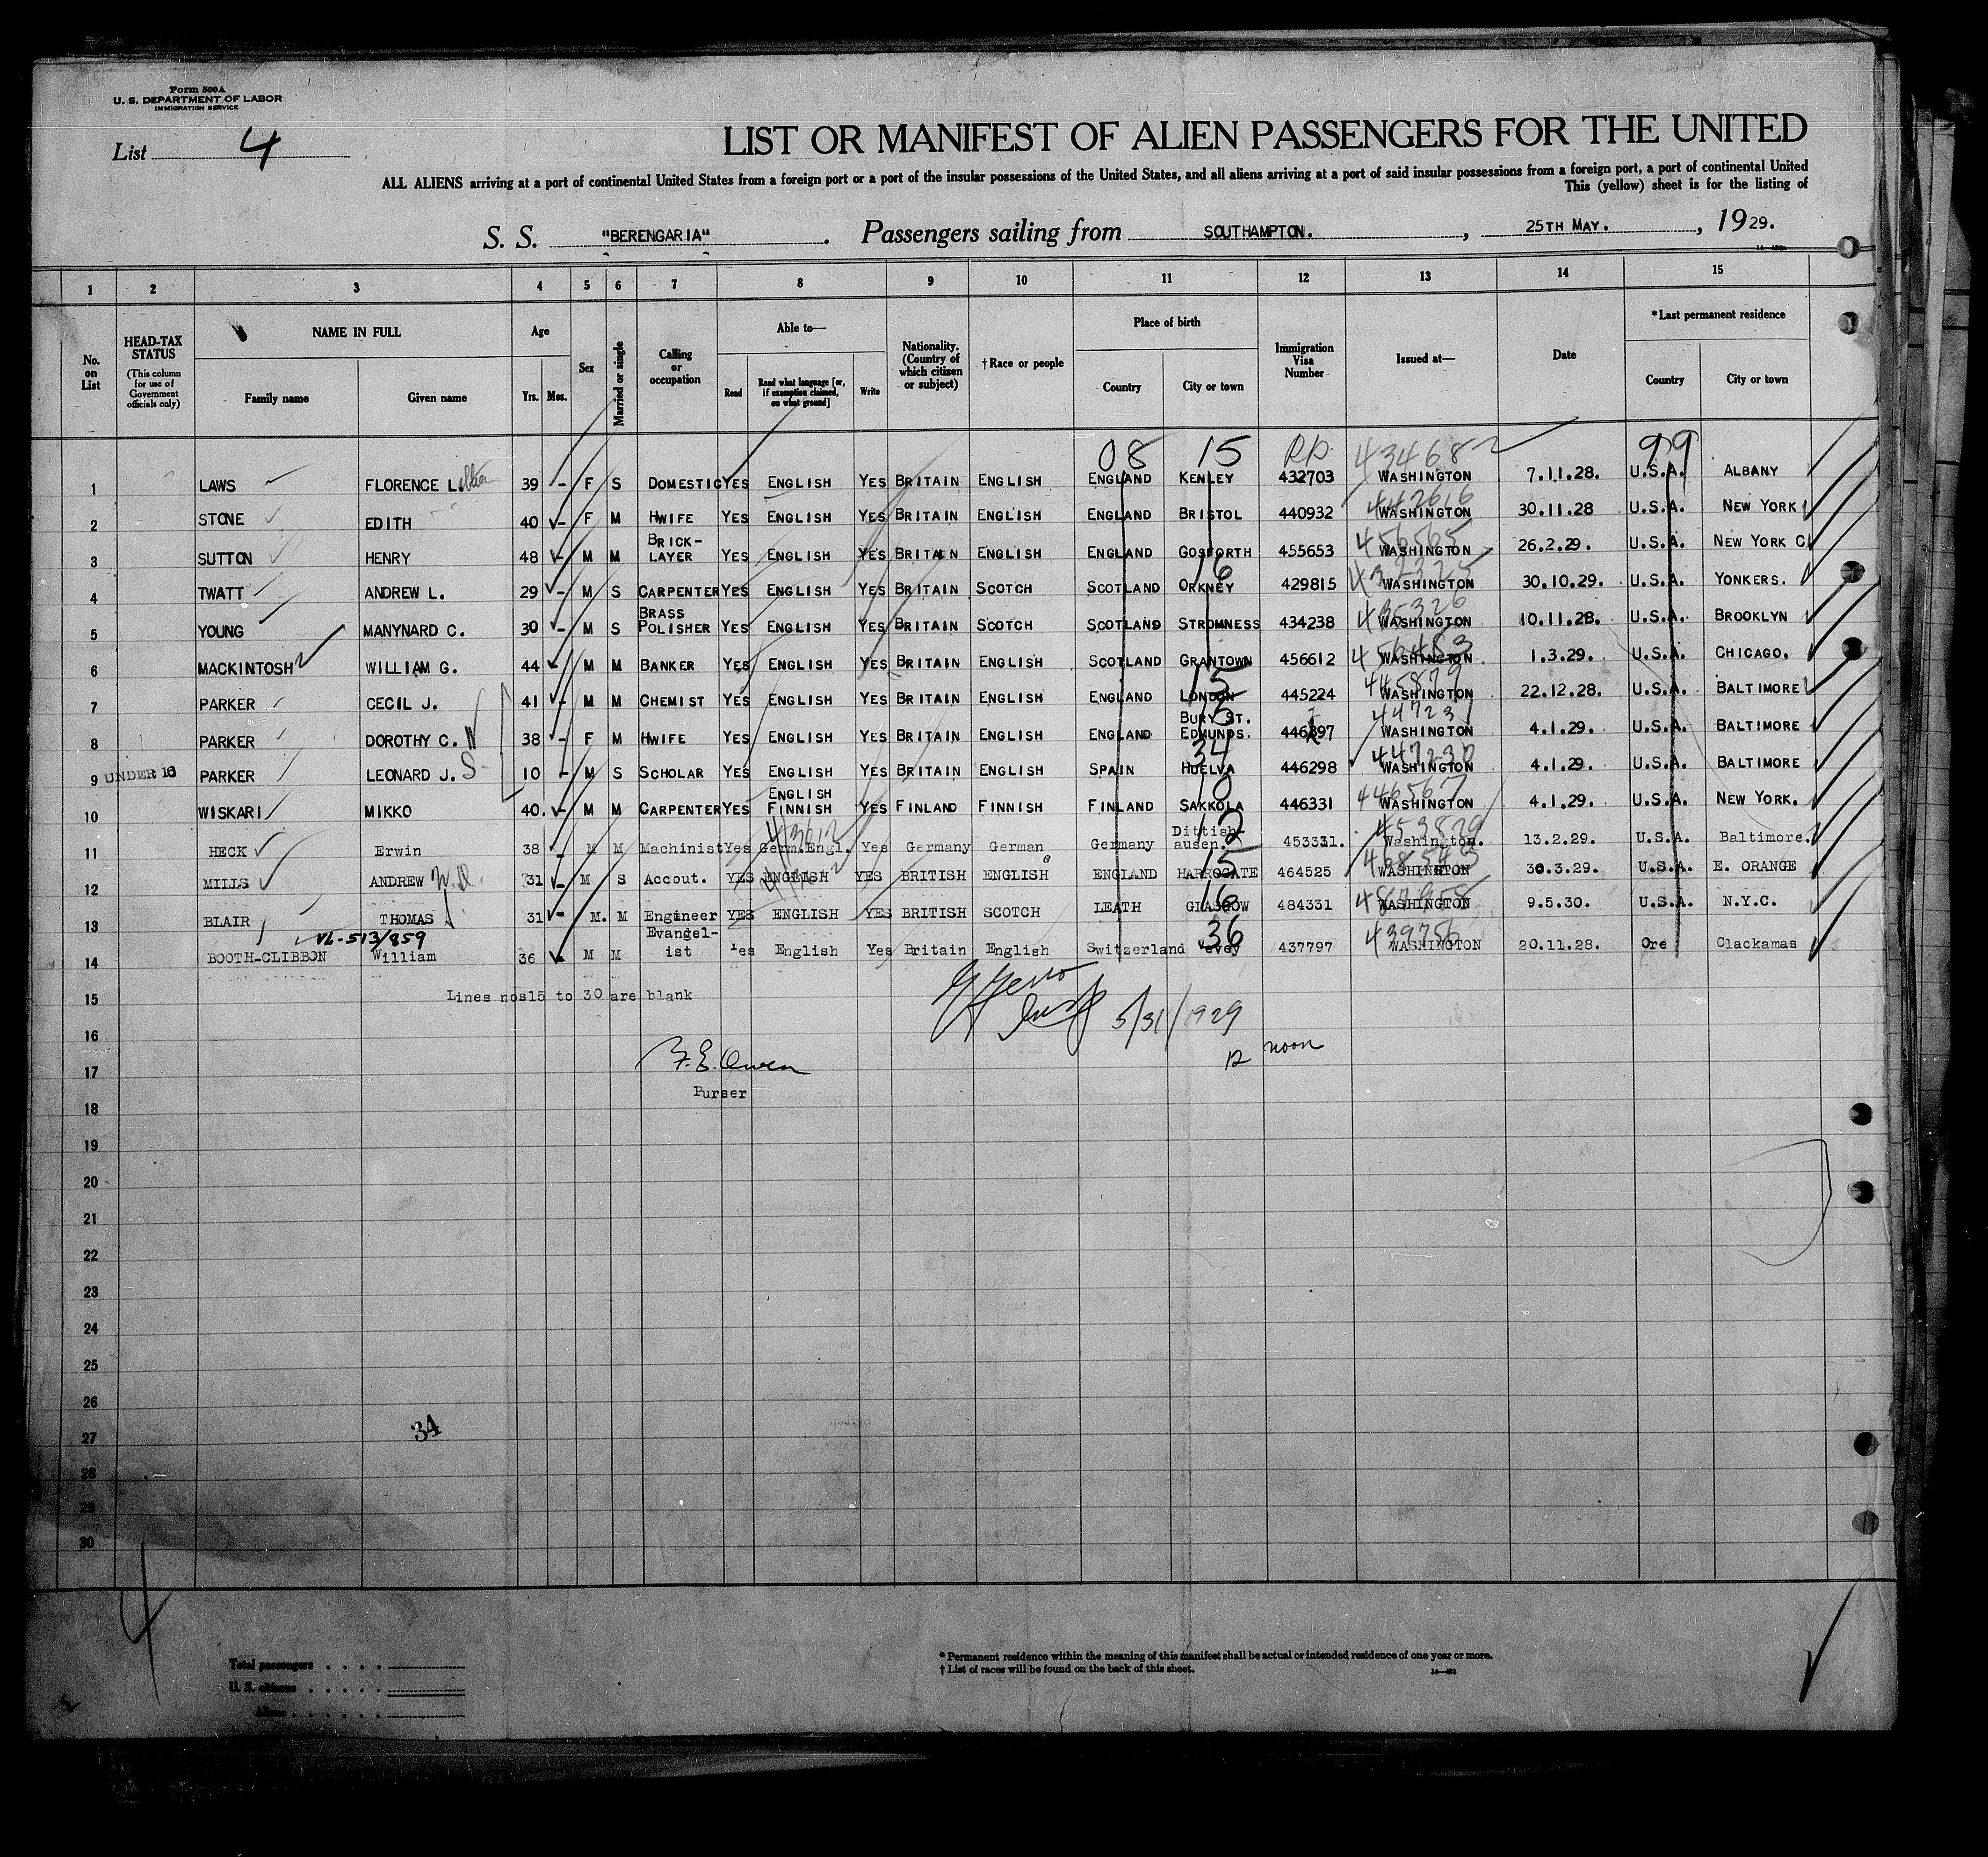 Form 500A
U. S. DEPARTMENT OF LABOR
IMMIGRATION SERVICE
List 4
LIST OR MANIFEST OF ALIEN PASSENGERS FOR THE UNITED
ALL ALIENS arriving at a port of continental United States from a foreign port or a port of the insular possessions of the United States, and all aliens arriving at a port of said insular possessions from a foreign port, a port of continental United
This (yellow) sheet is for the listing of
S. S. "BERENGARIA" . Passengers sailing from SOUTHAMPTON. , 25TH MAY. , 1929.
1 2 3 4 5 6 7 8 9 10 11 12 13 14 15
No. on List
HEAD-TAX STATUS (This column for use of Government officials only)
NAME IN FULL Family name Given name
Age Yrs. Mos.
Sex
Married or single
Calling or occupation
Able to— Read Read what language [or, if exemption claimed, on what ground] Write
Nationality. (Country of which citizen or subject)
†Race or people
Place of birth Country City or town
Immigration Visa Number
Issued at—
Date
*Last permanent residence Country City or town
08 15 RP. 434682 99
1 LAWS FLORENCE L. 39 - F S DOMESTIC YES ENGLISH YES BRITAIN ENGLISH ENGLAND KENLEY 432703 WASHINGTON 7.11.28. U.S.A. ALBANY
442616
2 STONE EDITH 40 - F M HWIFE YES ENGLISH YES BRITAIN ENGLISH ENGLAND BRISTOL 440932 WASHINGTON 30.11.28 U.S.A. NEW YORK
456565
3 SUTTON HENRY 48 - M M BRICK-LAYER YES ENGLISH YES BRITAIN ENGLISH ENGLAND GOSFORTH 455653 WASHINGTON 26.2.29. U.S.A. NEW YORK C
16
4 TWATT ANDREW L. 29 - M S CARPENTER YES ENGLISH YES BRITAIN SCOTCH SCOTLAND ORKNEY 429815 WASHINGTON 30.10.29. U.S.A. YONKERS.
435326
5 YOUNG MANYNARD C. 30 - M S BRASS POLISHER YES ENGLISH YES BRITAIN SCOTCH SCOTLAND STROMNESS 434238 WASHINGTON 10.11.28. U.S.A. BROOKLYN
456483
6 MACKINTOSH WILLIAM G. 44 - M M BANKER YES ENGLISH YES BRITAIN ENGLISH SCOTLAND GRANTOWN 456612 WASHINGTON 1.3.29. U.S.A. CHICAGO.
15 445879
7 PARKER CECIL J. 41 - M M CHEMIST YES ENGLISH YES BRITAIN ENGLISH ENGLAND LONDON 445224 WASHINGTON 22.12.28. U.S.A. BALTIMORE
447231
8 PARKER DOROTHY C. W 38 - F M HWIFE YES ENGLISH YES BRITAIN ENGLISH ENGLAND BURY ST. EDMUNDS. 446297 WASHINGTON 4.1.29. U.S.A. BALTIMORE
34 447232
9 UNDER 16 PARKER LEONARD J. S 10 - M S SCHOLAR YES ENGLISH YES BRITAIN ENGLISH SPAIN HUELVA 446298 WASHINGTON 4.1.29. U.S.A. BALTIMORE
10 446567
10 WISKARI MIKKO 40. - M M CARPENTER YES ENGLISH FINNISH YES FINLAND FINNISH FINLAND SAKKOLA 446331 WASHINGTON 4.1.29. U.S.A. NEW YORK.
12 453829
11 HECK Erwin 38 - M M Machinist Yes Germ.Engl. Yes Germany German Germany Dittish-ausen. 453331. Washington. 13.2.29. U.S.A. Baltimore.
15 468543
12 MILLS ANDREW W.D. 31 - M S Accout. YES ENGLISH YES BRITISH ENGLISH ENGLAND HARROGATE 464525 WASHINGTON 30.3.29. U.S.A. E. ORANGE
16 4867958
13 BLAIR THOMAS 31 - M. M Engineer YES ENGLISH YES BRITISH SCOTCH LEATH GLASGOW 484331 WASHINGTON 9.5.30. U.S.A. N.Y.C.
VL-513/859 36 439756
14 BOOTH-CLIBBON William 36 M M Evangel-ist Yes English Yes Britain English Switzerland Vevey 437797 WASHINGTON 20.11.28. Ore Clackamas
15 Lines nos15 to 30 are blank
5/31/1929
16
12 noon
F. E. Owen
17
Purser
18
19
20
21
22
23
24
25
26
34
27
28
29
30
4
Total passengers
U. S. citizens
Aliens
* Permanent residence within the meaning of this manifest shall be actual or intended residence of one year or more.
† List of races will be found on the back of this sheet.